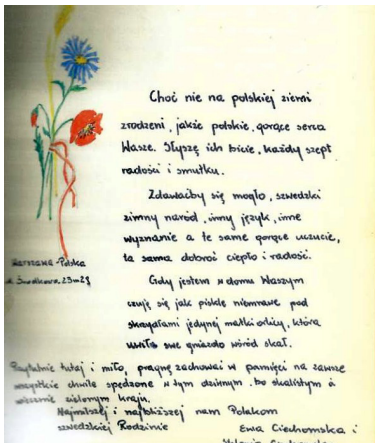 Choć nie na polskiej ziemi
zrodzeni, jakże polskie, gorące serca
Wasze. Słyszę ich bicie, każdy szept
radości i smutku.
Zdawaćby się mogło, szwedzki
zimny naród, inny język, inne
wyznanie a te same gorące uczucie,
ta sama dobroć ciepło i radość.
Gdy jestem w domu Waszym
czuję się jak pisklę niemrawe pod
skrzydłami jedynej matki orlicy, która
uwiła swe gniazdo wśród skał.
Warszawa-Polska
23 m 28
tutaj i miło, pragnę zachować w pamięci na zawsze
wszystkie chwile spędzone w tym dziwnym, bo skalistym a
wiecznie zielonym kraju.
Najmilszej i najbliższej nam Polakom
szwedzkiej Rodzinie
Ewa Ciechomska i